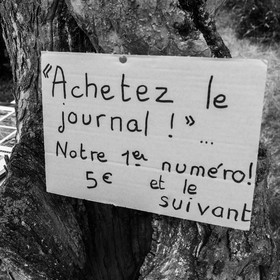 "Achetez le
journal !" ...
Notre 1er numéro!
5€ et le
suivant